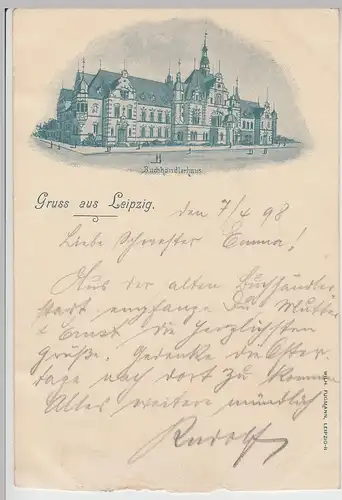 Buchhändlerhaus
Gruss aus Leipzig.
den 7/4 98
Liebe Schwester Emma!
Aus der alten Buchhändler
stadt empfange Du, Mutter
& Ernst die herzlichsten
Grüße. Gedenke die Oster-
tage nach dort zu kommen
Alles weitere mündlich
Rudolf
WILH. FUHMANN, LEIPZIG-R.